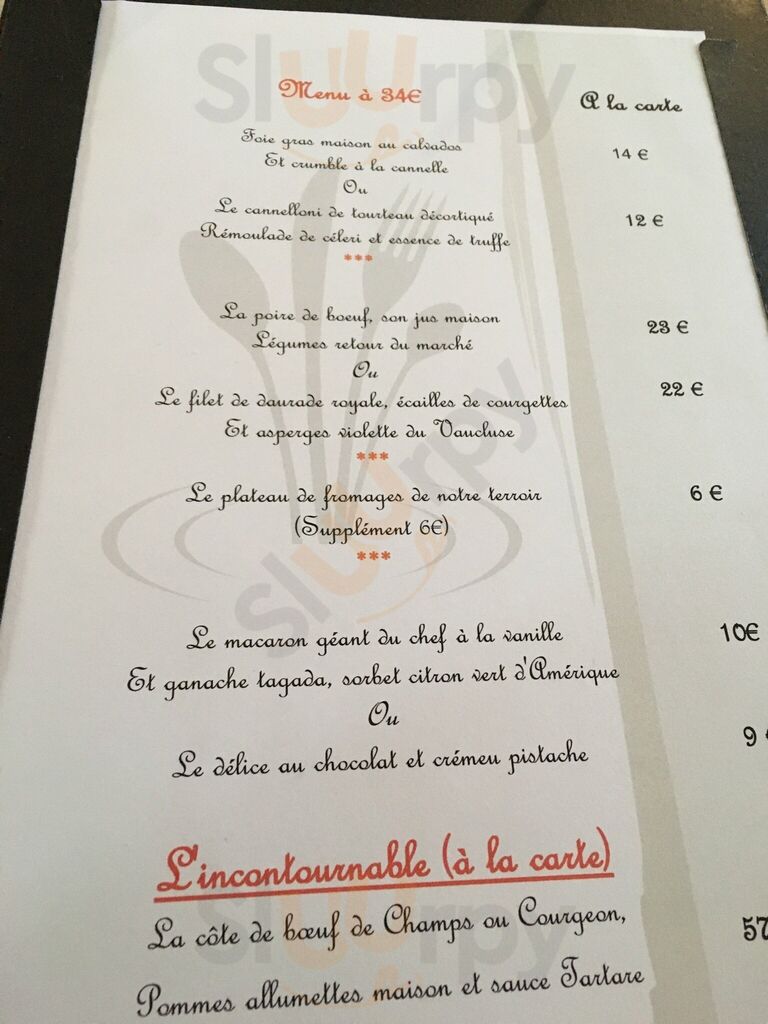 Sluurpy
Menu à 34€
A la carte
Foie gras maison au calvados
14 €
Et crumble à la cannelle
Ou
Le cannelloni de tourteau décortiqué
12 €
Rémoulade de céleri et essence de truffe
***
La poire de boeuf, son jus maison
23 €
Légumes retour du marché
Ou
Le filet de daurade royale, écailles de courgettes
22 €
Et asperges violette du Vaucluse
***
Le plateau de fromages de notre terroir
6 €
(Supplément 6€)
***
Sluurpy
Le macaron géant du chef à la vanille
10€
Et ganache tagada, sorbet citron vert d'Amérique
Ou
Le délice au chocolat et crémeu pistache
9 €
L'incontournable (à la carte)
La côte de bœuf de Champs ou Courgeon,
57
Pommes allumettes maison et sauce Tartare
Sluurpy